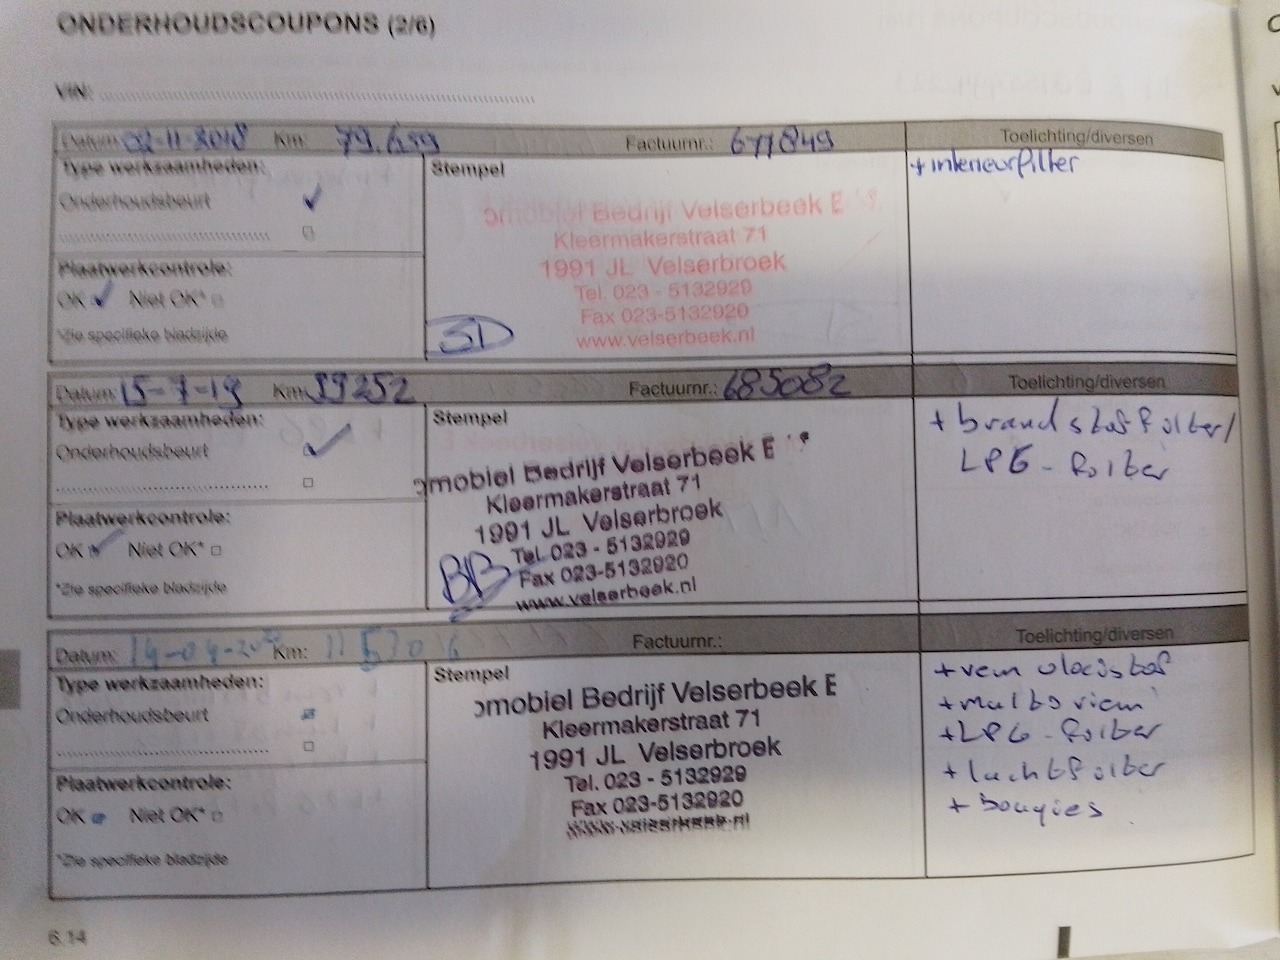 ONDERHOUDSCOUPONS (2/6)
VIN:
Datum: 02-11-2018 Km: 79.659 Factuurnr.: 677849 Toelichting/diversen
Type werkzaamheden: Stempel + interieurfilter
Onderhoudsbeurt
omobiel Bedrijf Velserbeek B
Kleermakerstraat 71
Plaatwerkcontrole:
1991 JL Velserbroek
OK Niet OK*
Tel. 023 - 5132929
Fax 023-5132920
*Zie specifieke bladzijde
SD
www.velserbeek.nl
Datum: 15-7-19 Km: 99252 Factuurnr.: 685082 Toelichting/diversen
Type werkzaamheden: Stempel + brandstoffilter/
Onderhoudsbeurt
LPG-filter
omobiel Bedrijf Velserbeek B
Kleermakerstraat 71
Plaatwerkcontrole:
1991 JL Velserbroek
OK Niet OK*
Tel. 023 - 5132929
BB
Fax 023-5132920
*Zie specifieke bladzijde
www.velserbeek.nl
Datum: 14-04-2020 Km: 115706 Factuurnr.: Toelichting/diversen
Type werkzaamheden: Stempel + rem vloeistof
Onderhoudsbeurt
omobiel Bedrijf Velserbeek B
+ multo riem
Kleermakerstraat 71
+ LPG-filter
1991 JL Velserbroek
Plaatwerkcontrole:
Tel. 023 - 5132929
+ luchtfilter
OK Niet OK*
Fax 023-5132920
+ bougies
www.velserbeek.nl
*Zie specifieke bladzijde
6.14